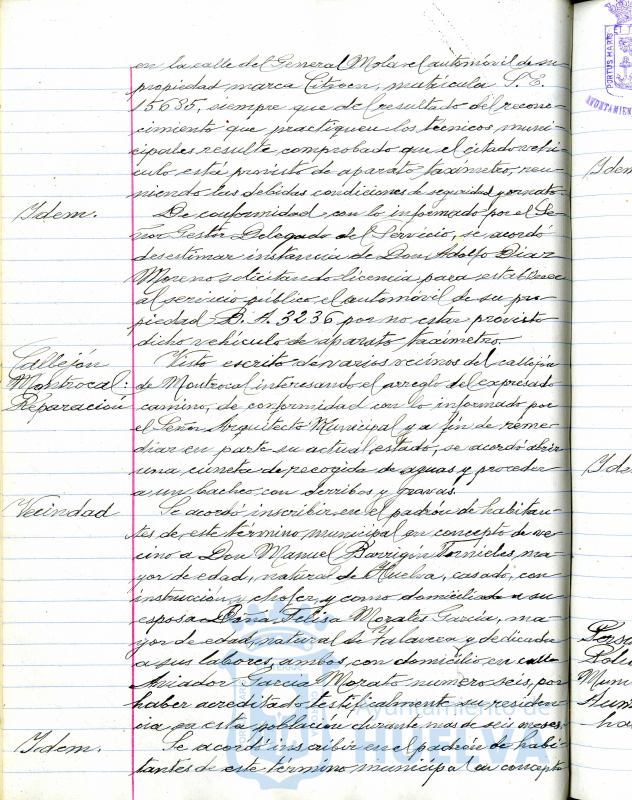 en la calle del General Mola el automóvil de su
propiedad marca Citroen, matrícula S.E.
15685, siempre que del resultado del recono-
cimiento que practiquen los técnicos muni-
cipales resulte comprobado que el citado vehí-
culo está provisto de aparato taxímetro, reu-
niendo las debidas condiciones de seguridad y ornato.
Idem.
De conformidad con lo informado por el Se-
ñor Gestor Delegado del Servicio, se acordó
desestimar instancia de Don Adolfo Diaz
Moreno solicitando licencia para establecer
al servicio público el automóvil de su pro-
piedad B.A. 3236 por no estar provisto
dicho vehículo de aparato taxímetro.
Callejón
Montrocal:
Reparación
Visto escrito de varios vecinos del callejón
de Montrocal interesando el arreglo del expresado
camino, de conformidad con lo informado por
el Señor Arquitecto Municipal y a fin de reme-
diar en parte su actual estado, se acordó abrir
una cuneta de recogida de aguas y proceder
a un bacheo con derribos y gravas.
Vecindad
Se acordó inscribir en el padrón de habitan-
tes de este término municipal en concepto de ve-
cino a Don Manuel Barrigón Tornieles, ma-
yor de edad, natural de Huelva, casado, con
instrucción y chofer, y como domiciliada a su
esposa Doña Felisa Morales García, ma-
yor de edad, natural de Talavera y dedicada
a sus labores, ambos con domicilio en calle
Aviador García Morato numero seis, por
haber acreditado testificalmente su residen-
cia en esta población durante mas de seis meses.
Idem.
Se acordó inscribir en el padrón de habi-
tantes de este término municipal en concepto
Ayuntamiento de
HUELVA
PORTUS MARIS
AYUNTAMIEN
Idem